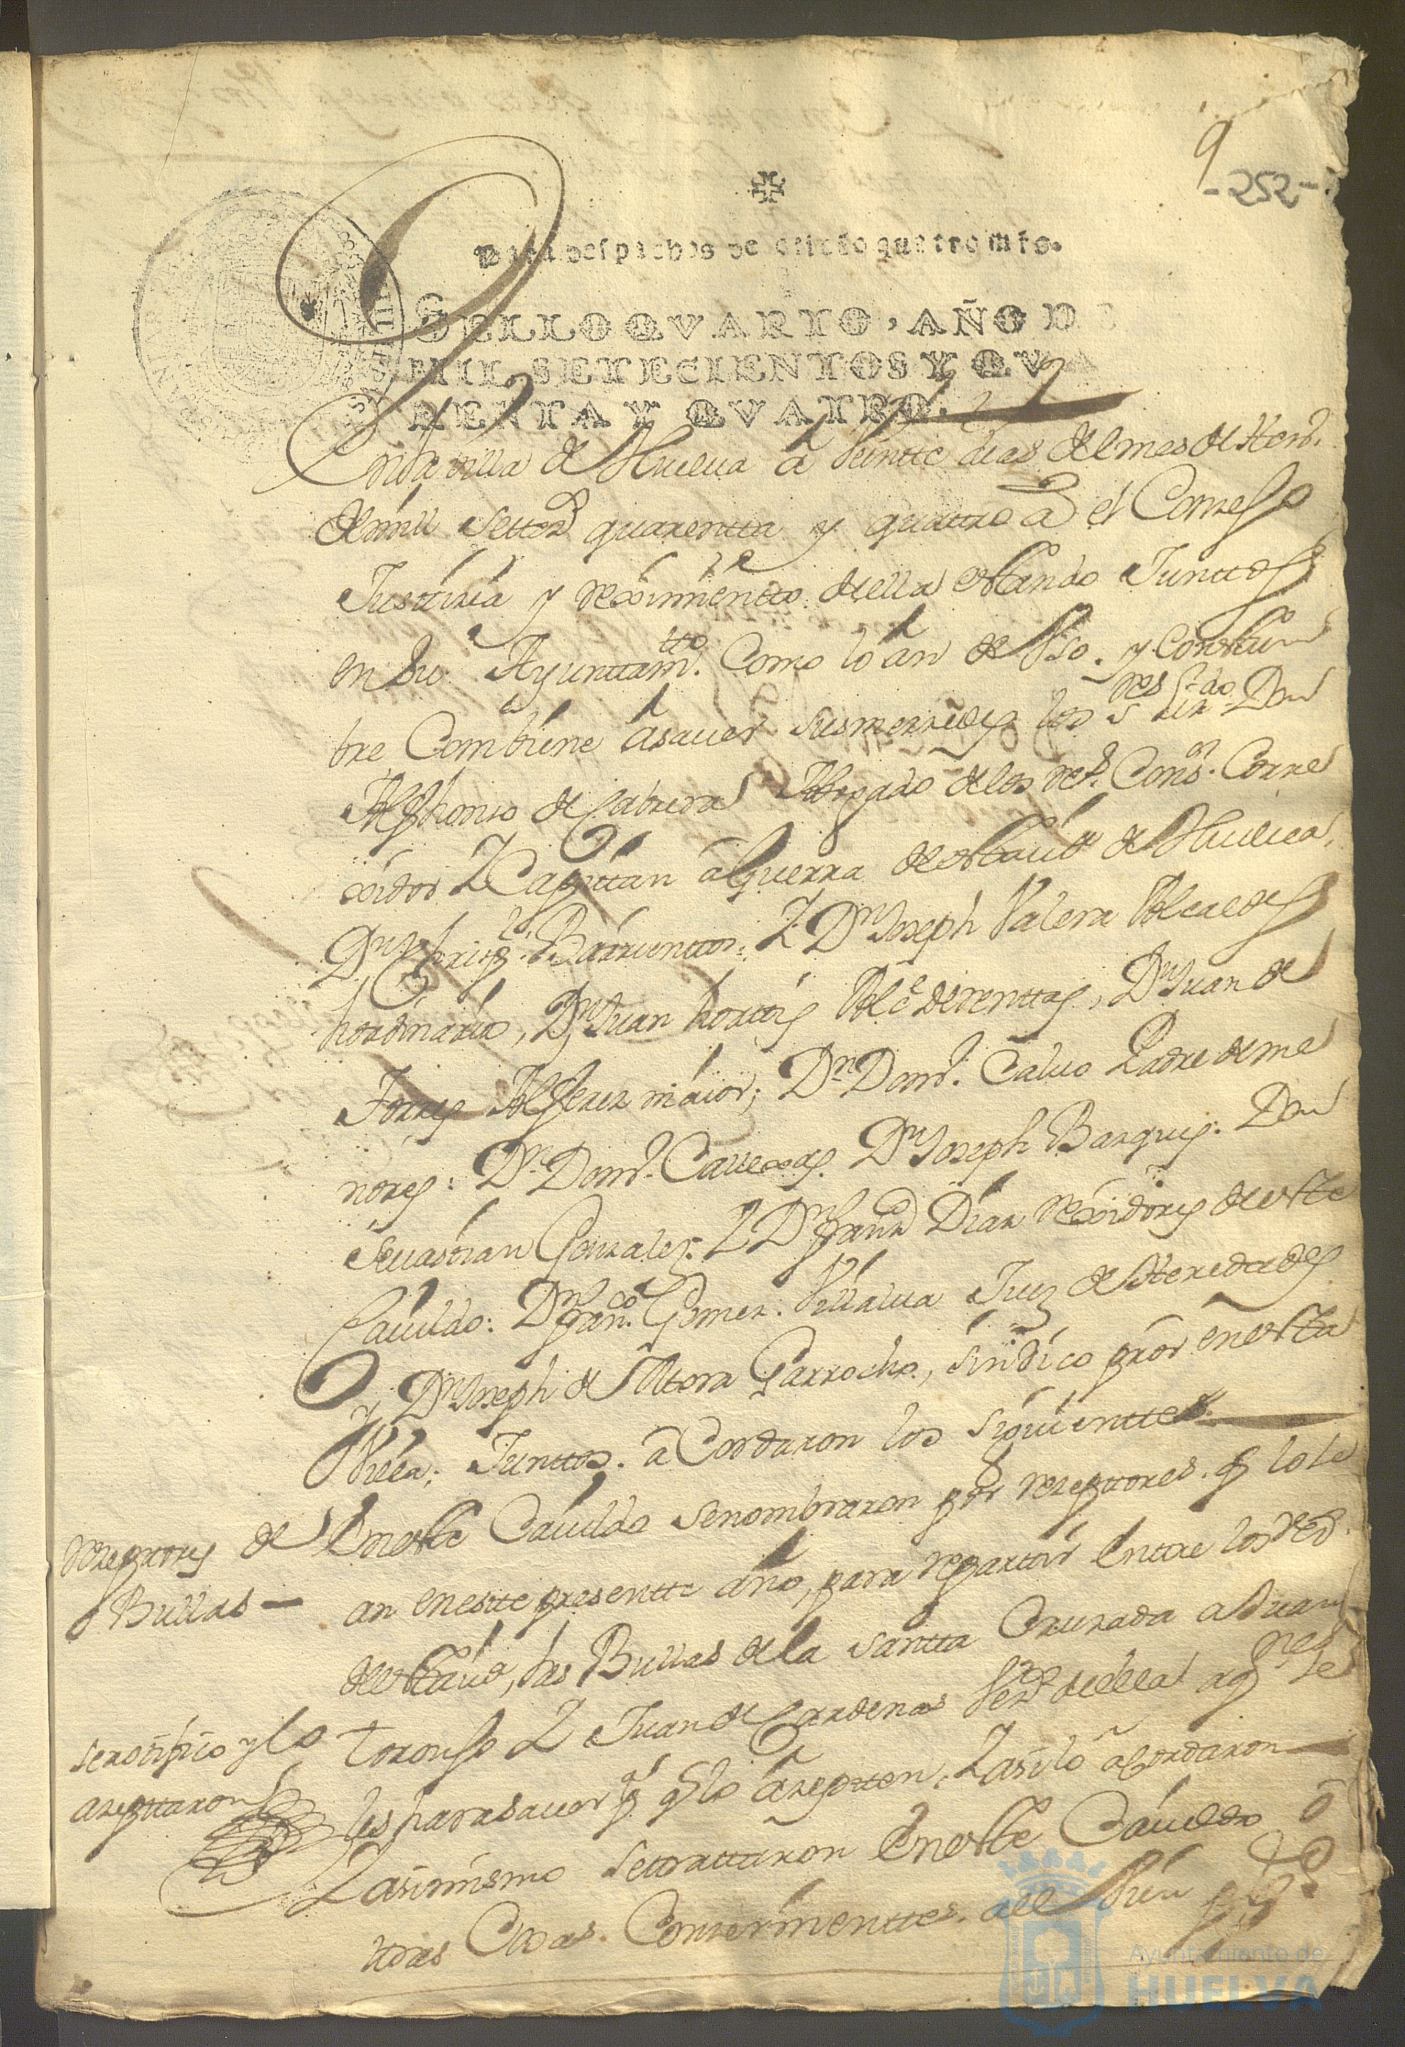 9
-252-
Para despachos de oficio quatro mrs.
SELLO QVARTO, AÑO DE
MIL SETECIENTOS Y QVA
RENTA Y QVATRO.
En la villa de Huelva a Veintte dias del mes de Hen.º
de mill setez.s quarentta y quattro a.s el Conzejo
Justizia y reximientto de ella estando Junttos
en su Ayunttam.tto Como lo an de Vso y Costum
bre Combiene a sauer sus merzedes los s.res liz.do Don
Alphonso de Cabrera Abogado de los R.s Cons.os Corre
xidor Y Capittan a Guerra de esta Uª de Huelua,
D.n Chrisp.l Barrienttos. Y D.n Joseph Valera Alcaldes
hordinarios, D.n Juan horttis Alc.e de renttas, D.n Juan de
Torres Alferez maior; D.n Dom.º Caluo Padre de me
nores: D.n Dom.º Cauezas. D.n Joseph Barques. Don
Seuastian Gonzales. Y D.n fran.co Diaz rexidores de este
Cauildo: D.n fran.co Gomez. Villalua Juez de Heredades
Y D.n Joseph de Mora Garrocho, sindico pror en esta
Villa; Junttos. a Cordaron los siguienttes
rezeptores de
Bullas —
En este Cauildo se nombraron por rezeptores. q lo se
an en este presentte año, para repartir Entre los vez.s
de esta Uª, las Bullas de la santta Cruzada a Juan
se notifico y lo
azepttaron
toronjo Y Juan de Cardenas vez.s de ella a q.nes se
les haga sauer p.ª q lo azepten, Y asi lo acordaron
Y asimismo se trattaron En este Cauildo o
ttras Cosas. Conzernienttes. al Vien p.co
Ayuntamiento de
HUELVA